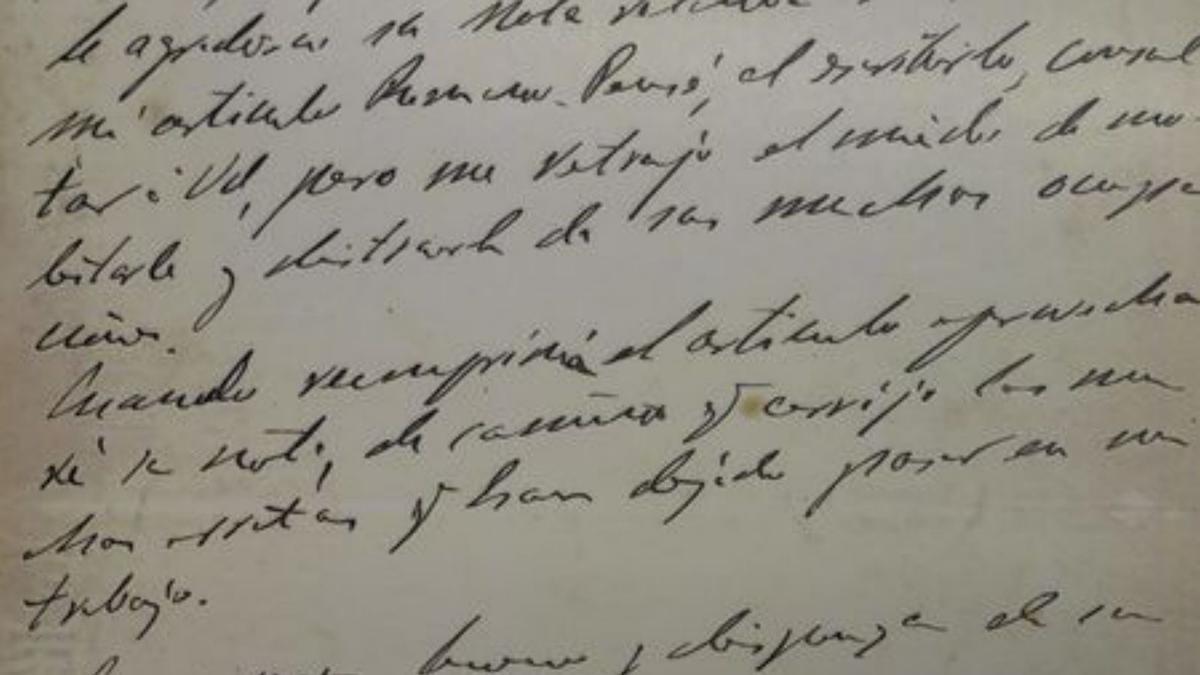 le agradezco su nota
mi articulo Rumano. Pensé, al escribirlo, consul
tar á Vd, pero me retrajo el miedo de mo
lestarle y distraerle de sus muchas ocupa
ciones.
Cuando reimprima el articulo aprovecha
ré su nota, de camino q corrijo las mu
chas erratas q han dejado pasar en mi
trabajo.
bueno y disponga de su